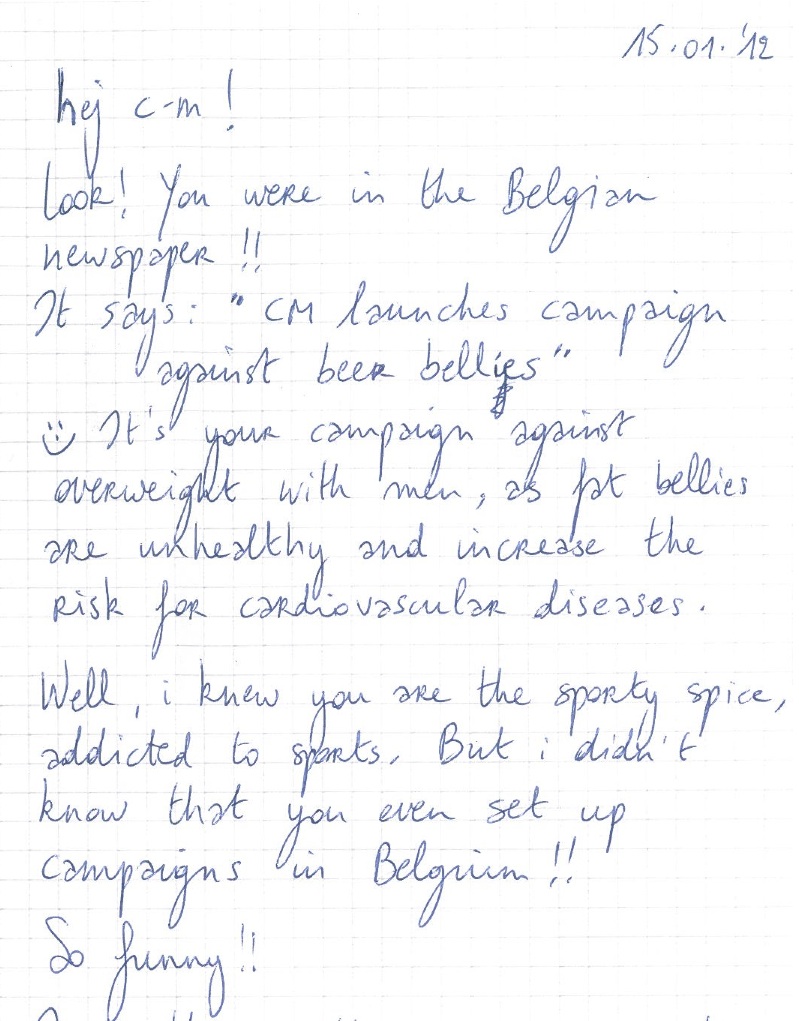 15.01.'12
hej c-m!
Look! You were in the Belgian
newspaper!!
It says: "CM launches campaign
against beer bellies"
☺ It's your campaign against
overweight with men, as fat bellies
are unhealthy and increase the
risk for cardiovascular diseases.
Well, i knew you are the sporty spice,
addicted to sports. But i didn't
know that you even set up
campaigns in Belgium!!
So funny!!